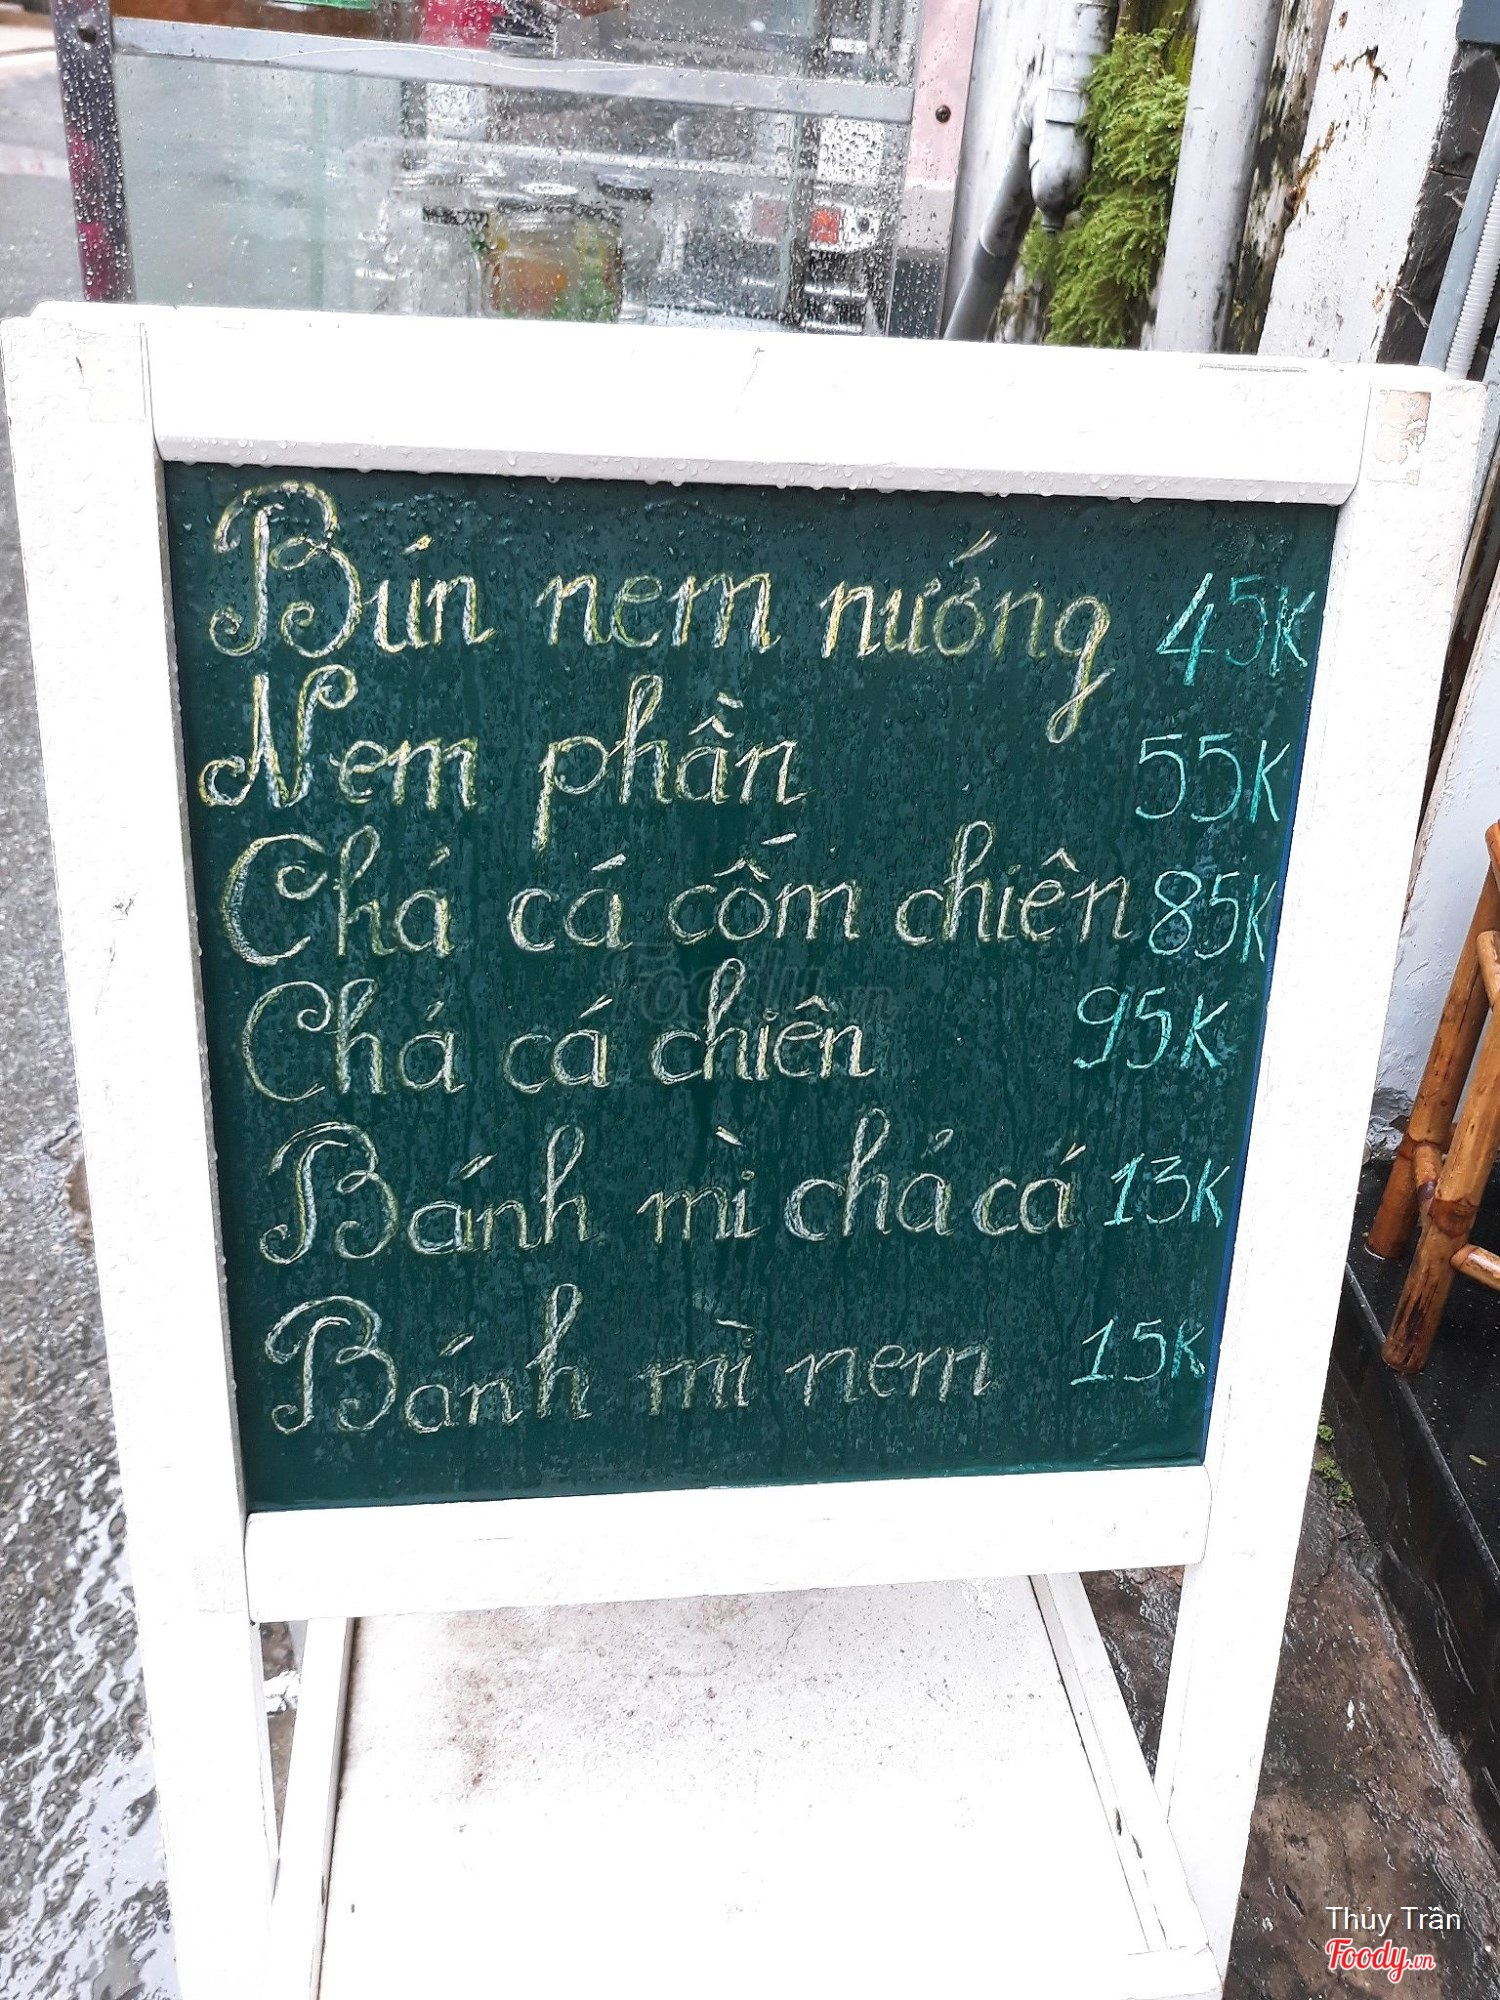 Bún nem nướng 45K
Nem phần 55K
Chả cá cốm chiên 85K
Chả cá chiên 95K
Bánh mì chả cá 13K
Bánh mì nem 15K
Foody.vn
Thủy Trần
Foody.vn